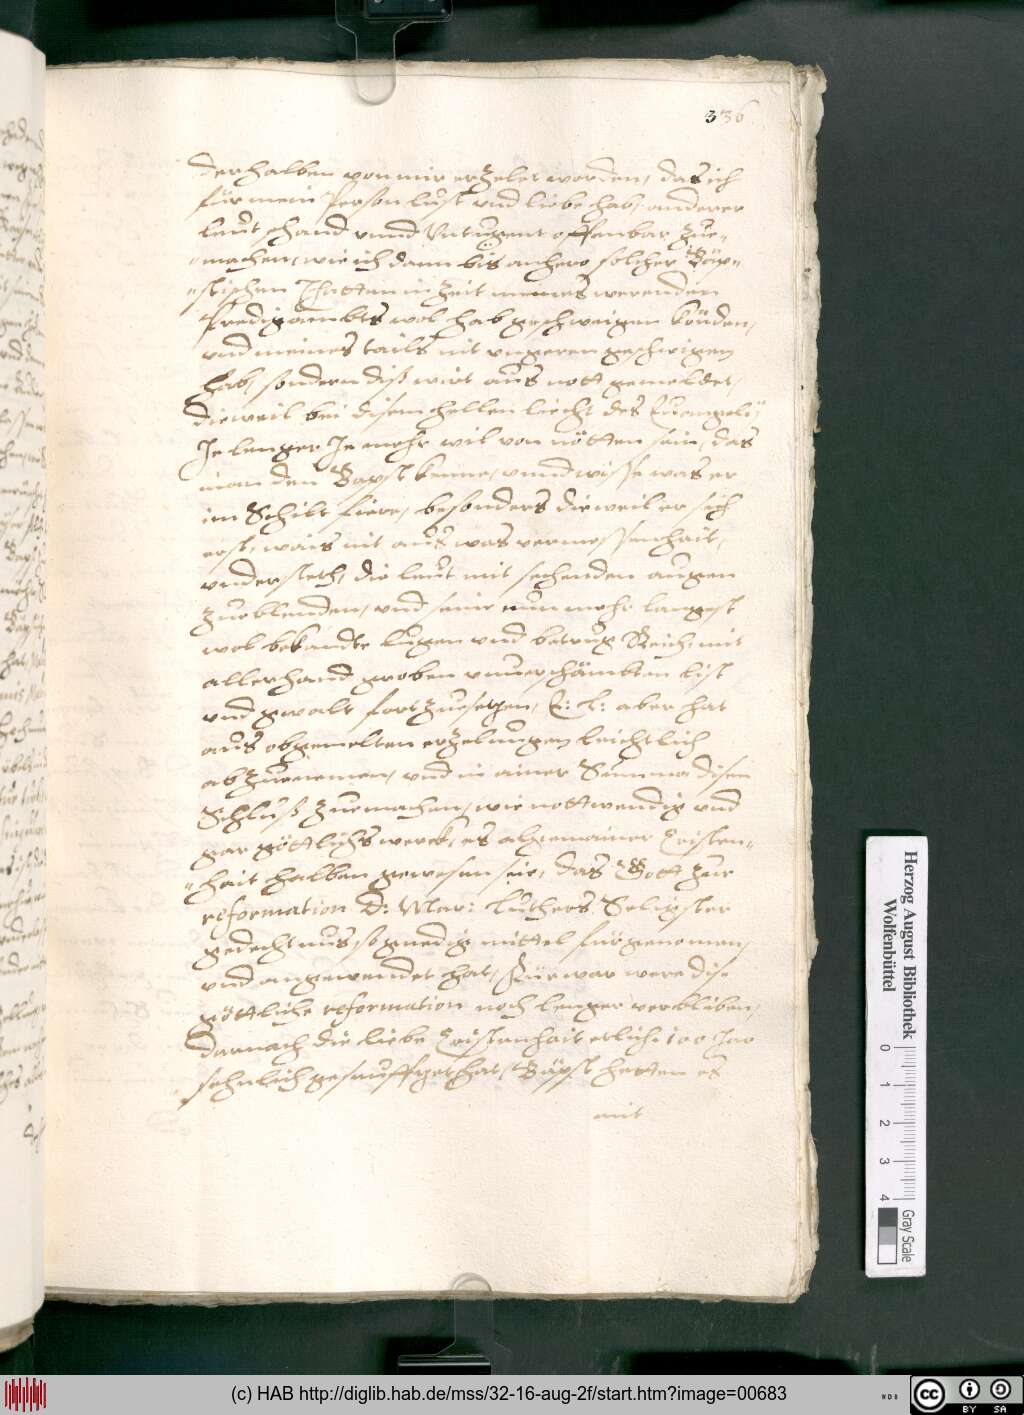 336
derhalben von mir erzelet worden, das ich
für mein Person lust vnd liebe hab, anderer
leut schand vnnd Vntugent offenbar zue-
-machen, wie ich dann bis anhero solcher Bäp-
-stischen Thatten in Zeit meines werenden
Predigambts wol hab geschweigen könden,
vnd meines tails nit vngeren geschwigen
hab, sondern diß wirt aus nott gemeldet,
dieweil bei disem hellen liecht des Euangelij
Je lenger Je mehr wil von nötten sein, das
man den Bapst kenne, vnnd wisse was er
im Schilt fiere, besonders dieweil er sich
erst, wais nit aus was vermessenhait,
vndersteth, die leut mit sehenden augen
zueblenden, vnd seine nun mehr langest
wol bekandte lugen vnd betrug Reich, mit
allerhand groben vnuerschämbten list
vnd gwalt fortzuesetzen, E: L: aber hat
aus obgemelten erzelungen leichtlich
abzuenemen, vnd in ainer Summa disen
Schluß zuemachen, wie nottwendig vnd
gar göttlichs werck, es algemainer Cristen-
-hait halben gewesen seie, das Gott zur
reformation D: Mar: Luthers Seligster
gedechtnus so gnedig mittel fürgenomen,
vnd angewendet hat, Fürwar were dise
göttliche reformation noch lenger verbliben,
darnach die liebe Cristenhait etlich 100 Jar
sehnlich geseuffzet hat, Bäpst hetten es
mit
Herzog August Bibliothek
Wolfenbüttel
0 1 2 3 4
Gray Scale
(c) HAB http://diglib.hab.de/mss/32-16-aug-2f/start.htm?image=00683
WDB
cc BY SA